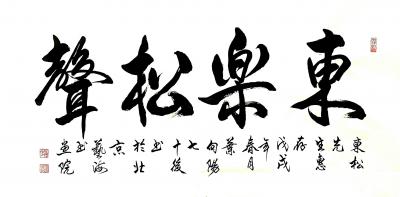 東樂松聲
東松先生惠存戊戌年春月葉向陽七十後书於北京藝海书畫院